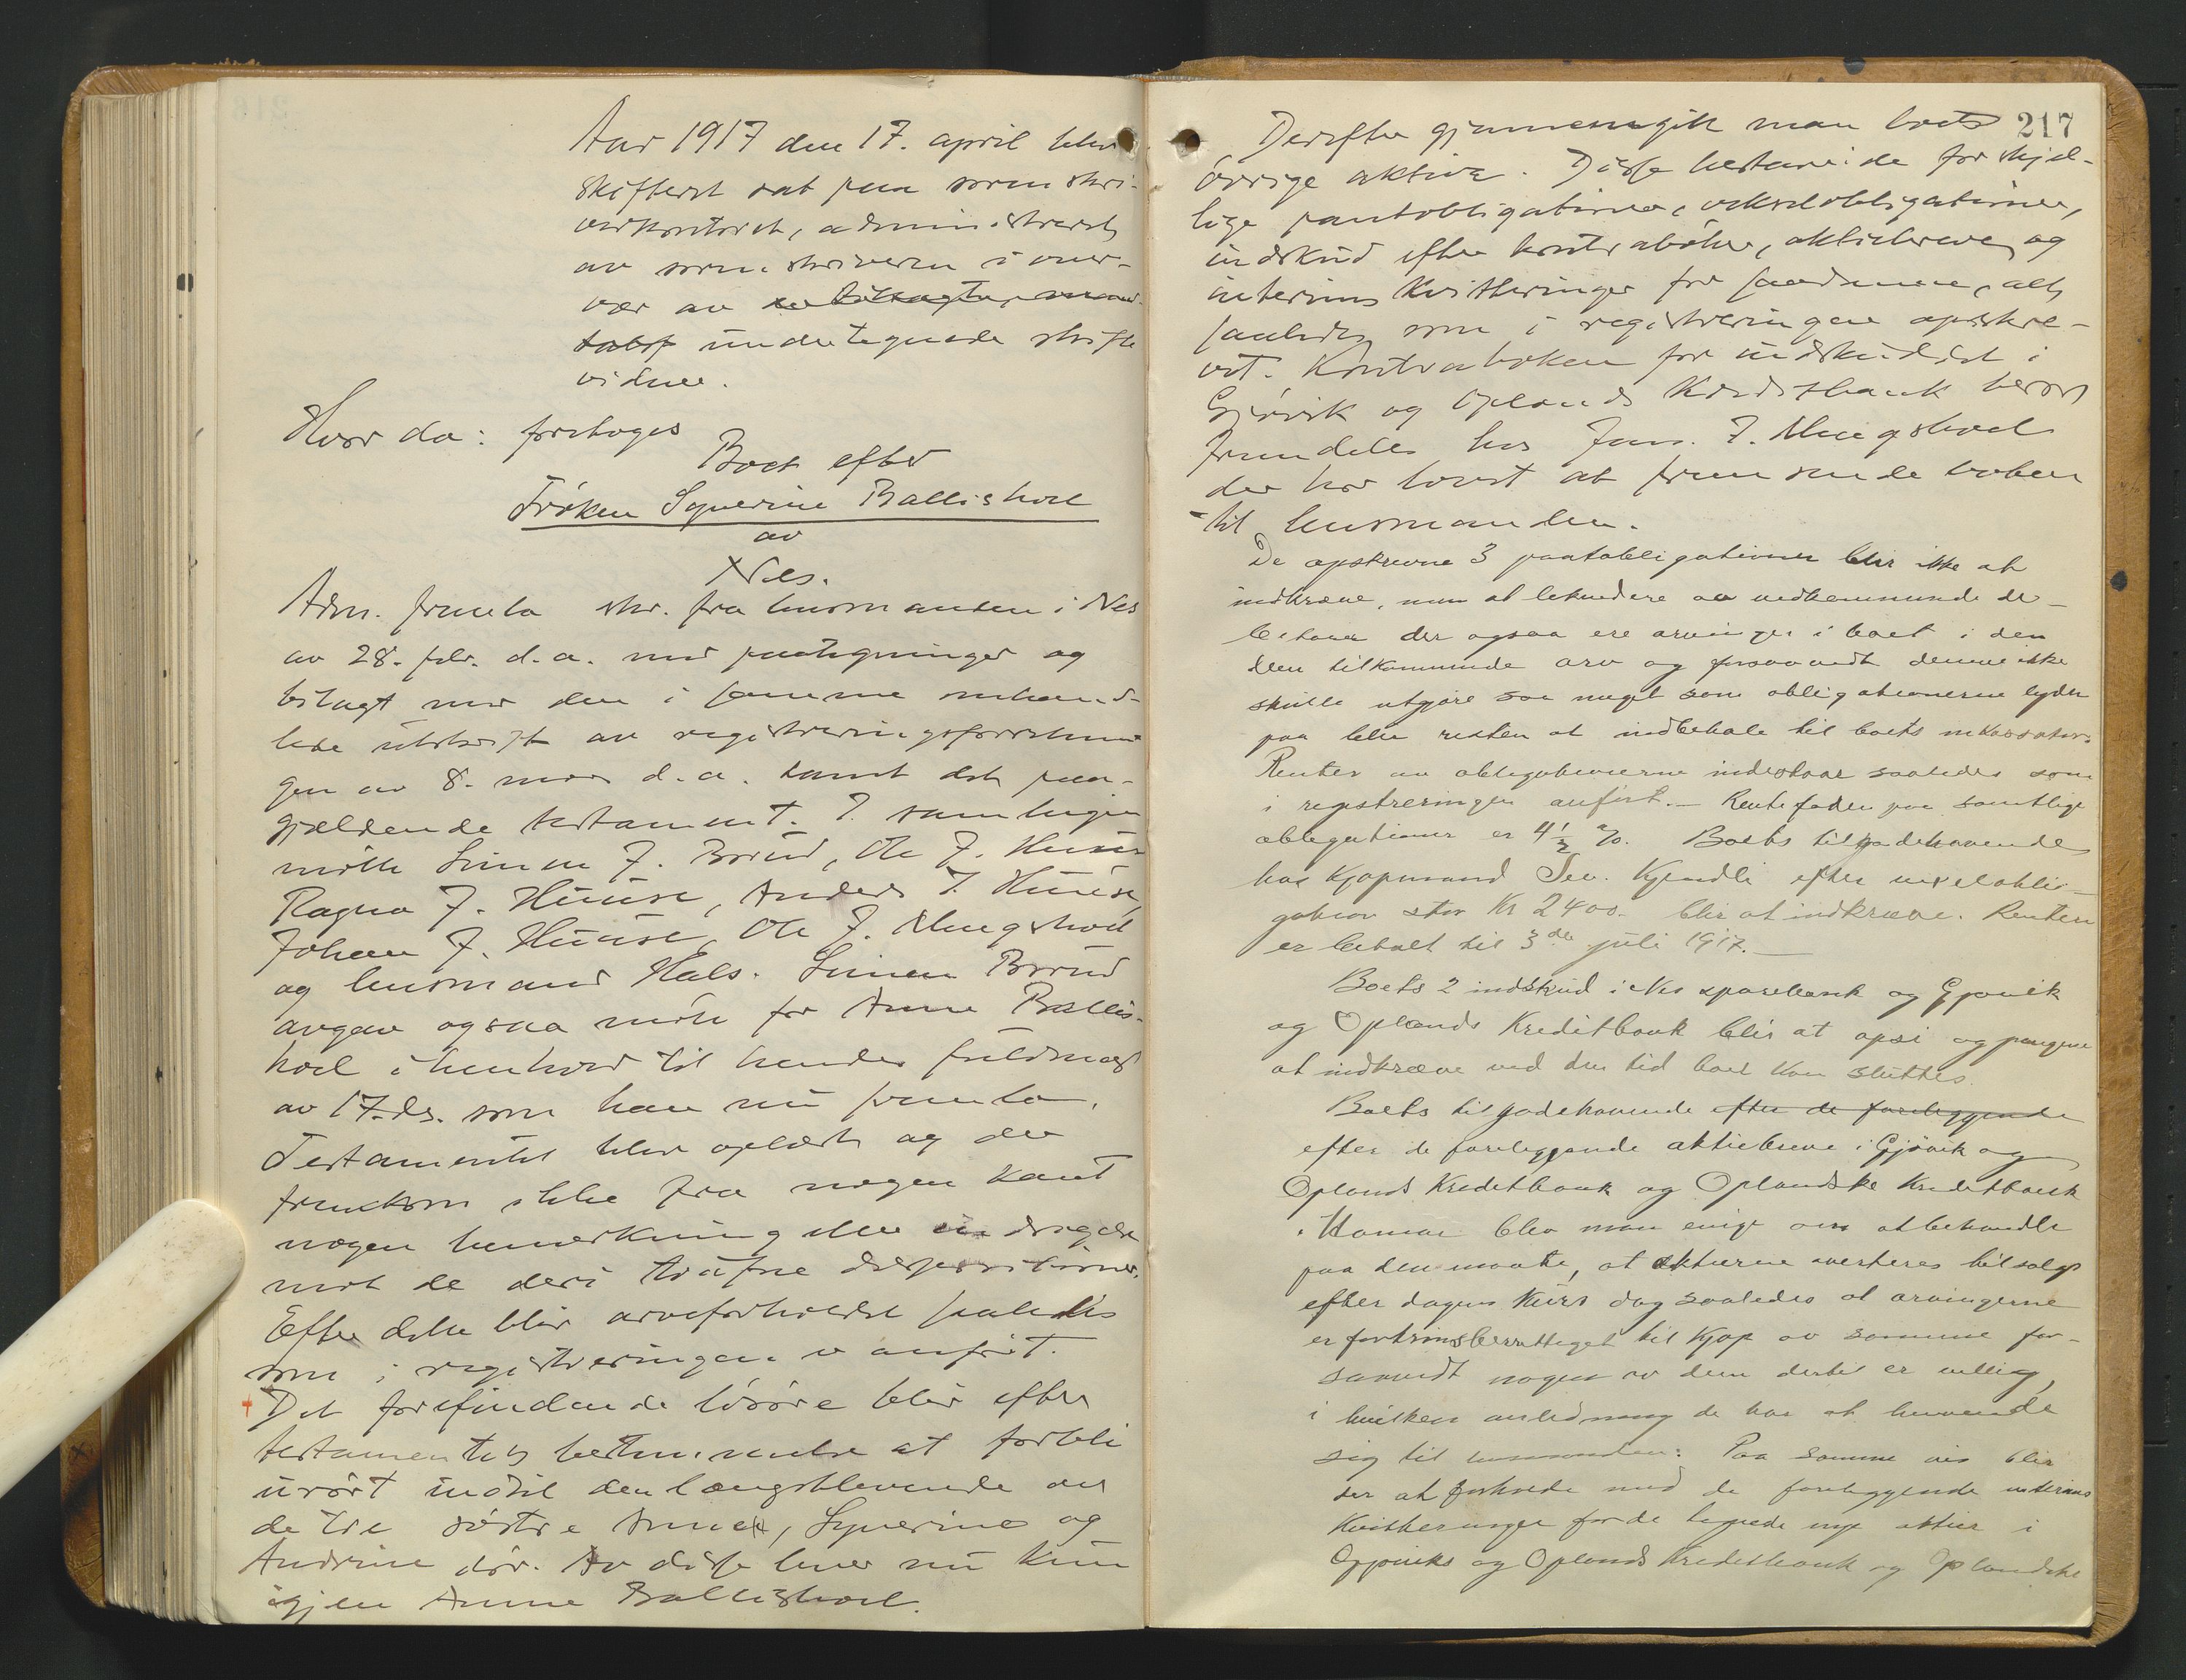 Aar 1917 den 17. april blev
skifteret sat paa sorenskri-
verkontoret, administreret
av sorenskriveren i over-
vær av
undertegnede skifte
vidner.
Hvor da: foretoges
Boet efter
Frøken Synerine Ballishoel
av
Nes.
Adm. fremla skr. fra lensmanden i Nes
av 28. febr. d.a. med paategninger og
bilagt med den i samme omhand-
lede utskrift av registreringsforretnin
gen av 8. mars d.a. samt det paa-
gjældende testament. I samlingen
møtte Simen J. Brrud, Ole J. Huuse
Ragna J. Huuse, Anders J. Huuse,
Johan J. Huuse, Ole J. Mengshoel
og lensmand Hals. Simen Brrud
avgav ogsaa møte for Anne Ballis-
hoel i henhold til hendes fuldmagt
av 17. ds. som han nu fremla.
Testamentet blev oplæst og der
fremkom ikke fra nogen kant
nogen bemerkning eller indsigelse
mot de deri trufne dispositioner.
Efter dette blir arveforholdet saaledes
som i registreringen er anført.
Det forefindende løsøre blir efter
testamentets bestemmelse at forbli
urørt indtil den længstlevende av
de tre søstre Anne, Synerine og
Andrine dør. Av disse lever nu kun
igjen Anne Ballishoel.
217
Derefter gjennemgik man boets
øvrige aktiva. Disse bestaar i de forskjel-
lige pantobligationer, vekselobligationer,
indskud efter kontrabøker, aktiebreve og
interims kvitteringer for saadanne, alt
saaledes som i registreringen opskre-
vet. Kontraboken for indskuddet i
Gjøvik og Oplands Kreditbank beror
fremdeles hos J. Mengshoel
der har lovet at fremsende boken
til lensmanden.
De opskrevne 3 pantobligationer blir ikke at
indkræve, men at likvidere av vedkommende de-
bitorer der ogsaa ere arvinger i boet i den
dem tilkommende arv og forsaavidt denne ikke
skulle utgjøre saa meget som obligationerne lyder
paa blir resten at indbetale til boets inkassator.
Renter av obligationerne indestaar saaledes som
i registreringen anført. — Rentefoden paa samtlige
obligationer er 4½ %. Boets tilgodehavende
hos Kjøpmand Sev. Kjendli efter vexelobli-
gation stor Kr 2400.- blir at indkræve. Renten
er betalt til 3de juli 1917. —
Boets 2 indskud i Nes sparebank og Gjøvik
og Oplands Kreditbank blir at opsi og pengene
at indkræve ved den tid boet kan sluttes.
Boets tilgodehavende efter de foreliggende
efter de foreliggende aktiebreve i Gjøvik og
Oplands Kreditbank og Oplandske Kreditbank
i Hamar blev man enige om at behandle
paa den maate, at aktierne averteres tilsalgs
efter dagens kurs dog saaledes at arvingerne
er fortrinsberettiget til kjøp av samme for-
saavidt nogen av dem dertil er villig,
i hvilken anledning de har at henvende
sig til lensmanden. Paa samme vis blir
der at forholde med de foreliggende interims
Kvitteringer for de tegnede nye aktier i
Gjøviks og Oplands Kreditbank og Oplandske